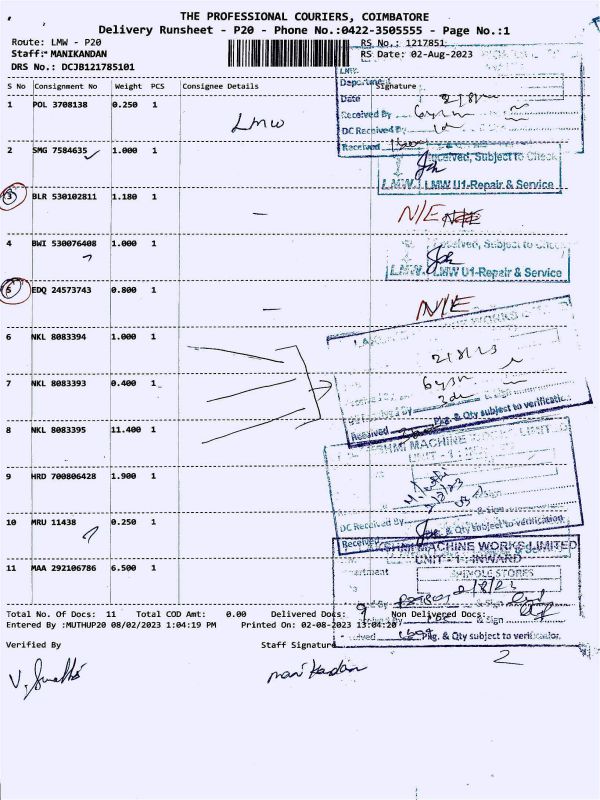 THE PROFESSIONAL COURIERS, COIMBATORE
Delivery Runsheet - P20 - Phone No.:0422-3505555 - Page No.:1
Route: LMW - P20 RS No.: 1217851
Staff: MANIKANDAN RS Date: 02-Aug-2023
DRS No.: DCJB121785101
S No Consignment No Weight PCS Consignee Details Signature
Department
Date 2/8/23
1 POL 3708138 0.250 1
Received By
LMW
DC Received By
Received
2 SMG 7584635 1.000 1
Received, Subject to Check
LMW U1-Repair & Service
3 BLR 530102811 1.180 1 N/E
4 BWI 530076408 1.000 1
Received, Subject to Check
LMW U1-Repair & Service
5 EDQ 24573743 0.800 1 N/E
6 NKL 8083394 1.000 1
2/8/23
7 NKL 8083393 0.400 1
Received Pkg. & Qty subject to verification
8 NKL 8083395 11.400 1
MACHINE WORKS LIMITED
UNIT - 1
9 HRD 700806428 1.900 1
10 MRU 11438 0.250 1
DC Received By & Sign
Received & Qty subject to verification
MACHINE WORKS LIMITED
UNIT - 1 - INWARD
11 MAA 292106786 6.500 1
SPINDLE STORES
2/8/23
Total No. Of Docs: 11 Total COD Amt: 0.00 Delivered Docs: 9 Non Delivered Docs:
Entered By :MUTHUP20 08/02/2023 1:04:19 PM Printed On: 02-08-2023 13:04:20
& Sign
Pkg. & Qty subject to verification
Verified By Staff Signature
2
manikandan